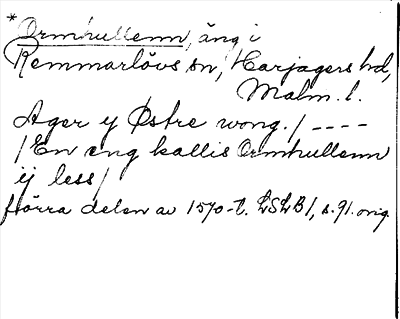 * Ormhullenn, äng i
Remmarlövs sn, Harjagers hd,
Malm. l.
Ager y Østre wong. / ----
/ En eng kallis Ormhullenn
ij less /
förra delen av 1570-t. LSLB 1, s. 91. orig.